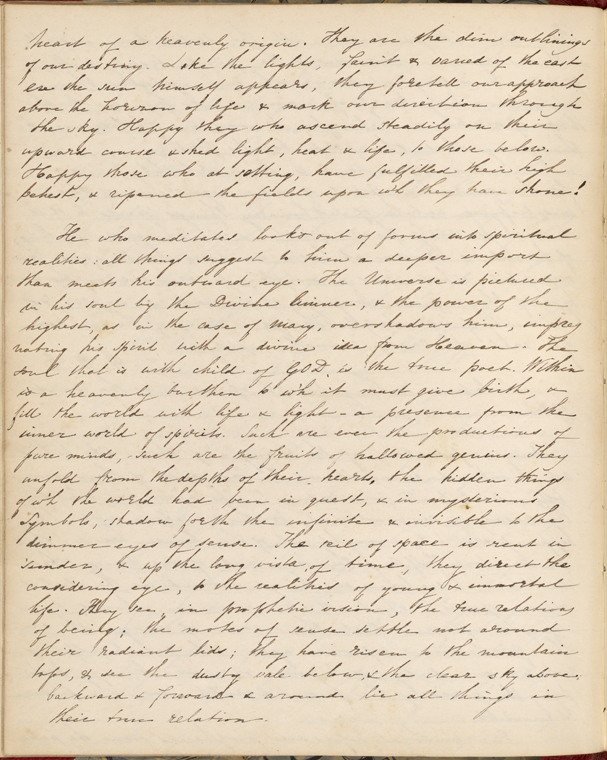 heart of a heavenly origin. They are the dim outlinings
of our destiny. Like the lights, faint & varied of the east
ere the sun himself appears, they foretell our approach
above the horizon of life & mark our direction through
the sky. Happy they who ascend steadily on their
upward course & shed light, heat & life, to those below.
Happy those who at setting, have fulfilled their high
behest, & ripened the fields upon wh they have shone!
He who meditates looks out of forms into spiritual
realities: all things suggest to him a deeper import
than meets his outward eye. The Universe is pictured
in his soul by the Divine limner, & the power of the
highest, as in the case of Mary, overshadows him, impreg
nating his spirit with a divine idea from Heaven. The
soul that is with child of GOD, is the true poet. Within
is a heavenly burthen to wh it must give birth, &
fill the world with life & light - a presence from the
inner world of spirits. Such are ever the productions of
pure minds, such are the fruits of hallowed genius. They
unfold from the depths of their hearts, the hidden things
of wh the world had been in quest, & in mysterious
symbols, shadow forth the infinite & invisible to the
dimmer eyes of sense. The veil of space is rent in
sunder, & up the long vista of time, they direct the
considering eye, to the realities of young & immortal
life. They see, in prophetic vision, the true relations
of being; the motes of sense settle not around
their radiant lids; they have risen to the mountain
tops, & see the dusty vale below, & the clear sky above;
backward & forward & around lie all things in
their true relation.